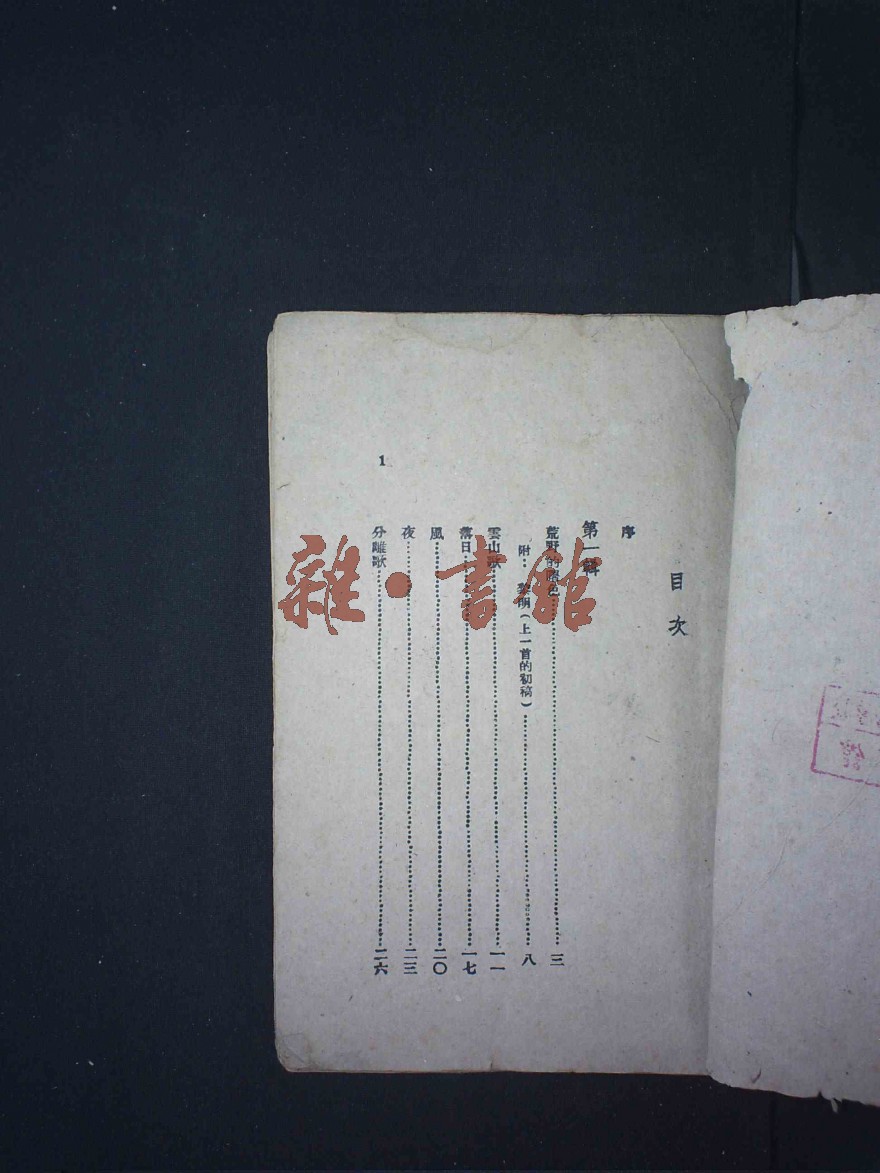 目次
序
第一輯
荒野的曙色……三
附：黎明（上一首的初稿）……八
雲山歌……一一
落日……一七
風……二〇
夜……二三
分離歌……二六
1
雜·書館